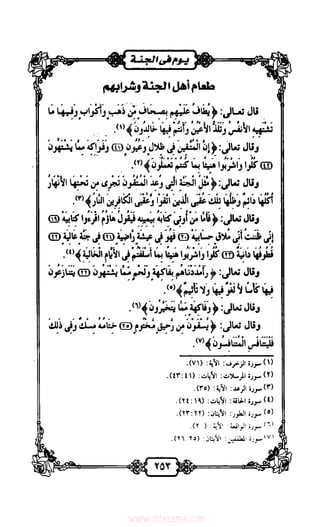 يوم في الجنة
طعام أهل الجنة وشرابهم
قال تعالى: ﴿يُطَافُ عَلَيْهِم بِصِحَافٍ مِّن ذَهَبٍ وَأَكْوَابٍ وَفِيهَا مَا
تَشْتَهِيهِ الأَنفُسُ وَتَلَذُّ الأَعْيُنُ وَأَنتُمْ فِيهَا خَالِدُونَ﴾(١).
وقال تعالى: ﴿إِنَّ الْمُتَّقِينَ فِي ظِلالٍ وَعُيُونٍ (٤١) وَفَوَاكِهَ مِمَّا يَشْتَهُونَ
(٤٢) كُلُوا وَاشْرَبُوا هَنِيئًا بِمَا كُنتُمْ تَعْمَلُونَ﴾(٢).
وقال تعالى: ﴿مَثَلُ الْجَنَّةِ الَّتِي وُعِدَ الْمُتَّقُونَ تَجْرِي مِن تَحْتِهَا الأَنْهَارُ
أُكُلُهَا دَائِمٌ وَظِلُّهَا تِلْكَ عُقْبَى الَّذِينَ اتَّقَوا وَّعُقْبَى الْكَافِرِينَ النَّارُ﴾(٣).
وقال تعالى: ﴿فَأَمَّا مَنْ أُوتِيَ كِتَابَهُ بِيَمِينِهِ فَيَقُولُ هَاؤُمُ اقْرَءُوا كِتَابِيَهْ (١٩)
إِنِّي ظَنَنتُ أَنِّي مُلاقٍ حِسَابِيَهْ (٢٠) فَهُوَ فِي عِيشَةٍ رَّاضِيَةٍ (٢١) فِي جَنَّةٍ عَالِيَةٍ (٢٢)
قُطُوفُهَا دَانِيَةٌ (٢٣) كُلُوا وَاشْرَبُوا هَنِيئًا بِمَا أَسْلَفْتُمْ فِي الأَيَّامِ الْخَالِيَةِ﴾(٤).
وقال تعالى: ﴿وَأَمْدَدْنَاهُم بِفَاكِهَةٍ وَلَحْمٍ مِّمَّا يَشْتَهُونَ (٢٢) يَتَنَازَعُونَ
فِيهَا كَأْسًا لاَّ لَغْوٌ فِيهَا وَلا تَأْثِيمٌ﴾(٥).
وقال تعالى: ﴿وَفَاكِهَةٍ مِّمَّا يَتَخَيَّرُونَ﴾(٦).
وقال تعالى: ﴿يُسْقَوْنَ مِن رَّحِيقٍ مَّخْتُومٍ (٢٥) خِتَامُهُ مِسْكٌ وَفِي ذَلِكَ
فَلْيَتَنَافَسِ الْمُتَنَافِسُونَ﴾(٧).
(١) سورة الزخرف: الآية: (٧١).
(٢) سورة المرسلات: الآيات: (٤١: ٤٣).
(٣) سورة الرعد: الآية: (٣٥).
(٤) سورة الحاقة: الآيات: (١٩: ٢٤).
(٥) سورة الطور: الآيتان: (٢٢: ٢٣).
(٦) سورة الواقعة: الآية:
(٧) سورة المطففين: الآيتان: (٢٥، ٢٦).
٢٥٣